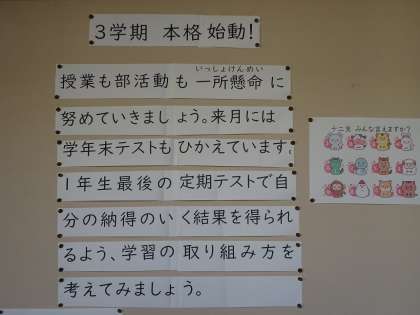 3学期 本格始動!
いっしょけんめい
授業も部活動も一所懸命に
努めていきましょう。来月には
学年末テストもひかえています。
1年生最後の定期テストで自
分の納得のいく結果を得られ
るよう、学習の取り組み方を
考えてみましょう。
十二支 みんな言えますか?